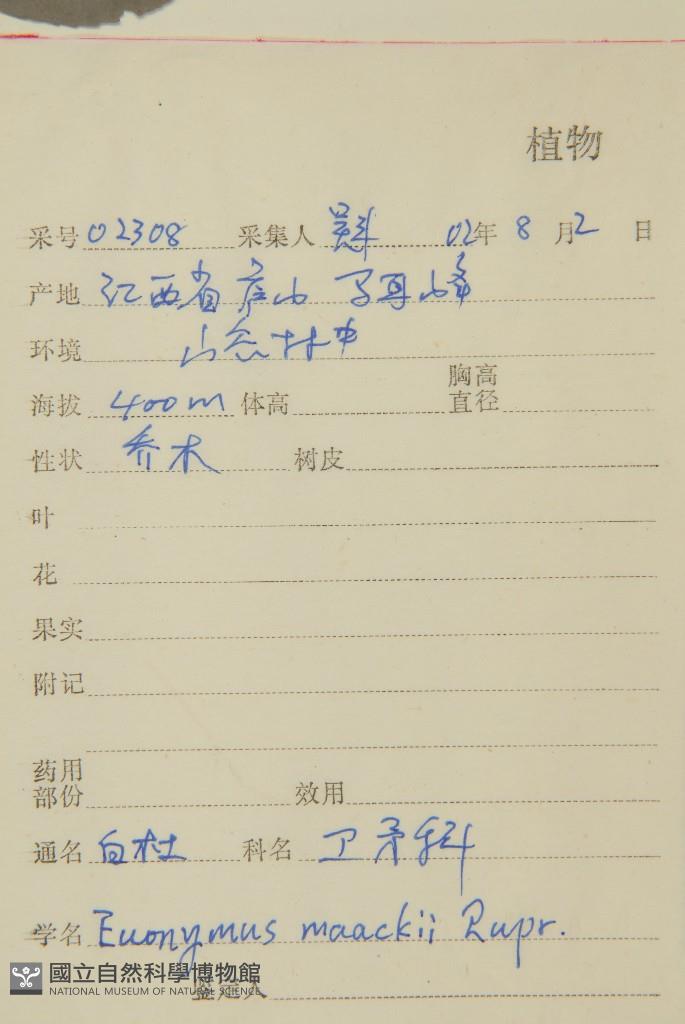 植物
采号 02308 采集人 02年 8月2日
产地 江西省庐山 马耳峰
环境 山谷林中
海拔 400m 体高 胸高直径
性状 乔木 树皮
叶
花
果实
附记
药用部份 效用
通名 白杜 科名 卫矛科
学名 Euonymus maackii Rupr.
國立自然科學博物館
NATIONAL MUSEUM OF NATURAL SCIENCE
鉴定人